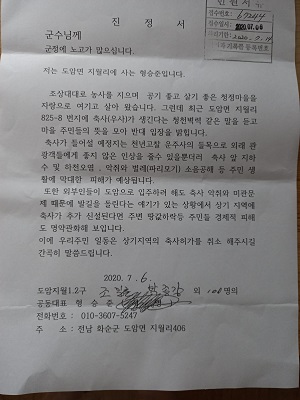 진 정 서
민원서류
접수번호: 67244
접수일자: 2020.07.08
처리기한: 2020. 7. 14
군수님께
군정에 노고가 많으십니다.
저는 도암면 지월리에 사는 형승준입니다.
조상대대로 농사를 지으며 공기 좋고 살기 좋은 청청마을을
자랑으로 여기고 살아 왔습니다. 그런데 최근 도암면 지월리
825-8 번지에 축사(우사)가 생긴다는 청천벽력 같은 말을 듣고
마을 주민들의 뜻을 모아 반대 입장을 밝힙니다.
축사가 들어설 예정지는 천년고찰 운주사의 들목으로 외래 관
광객들에게 좋지 않은 인상을 줄수 있을뿐더러 축사 앞 저하
수 및 하천오염 , 악취와 벌레(파리모기) 소음공해 등 주민 생
활에 막대한 피해가 예상됩니다.
또한 외부인들이 도암으로 입주하려 해도 축사 악취와 미관문
제 때문에 발길을 돌린다는 얘기가 있는 상황에서 상기 지역에
축사가 추가 신설된다면 주변 땅값하락등 주민들 경제적 피해
도 명약관화해 보입니다.
이에 우리주민 일동은 상기지역의 축사허가를 취소 해주시길
간곡히 말씀드립니다.
2020. 7. 6.
도암지월1.2구 외 108명의
공동대표 형 승 준
전화번호 : 010-3607-5247
주 소 : 전남 화순군 도암면 지월리406